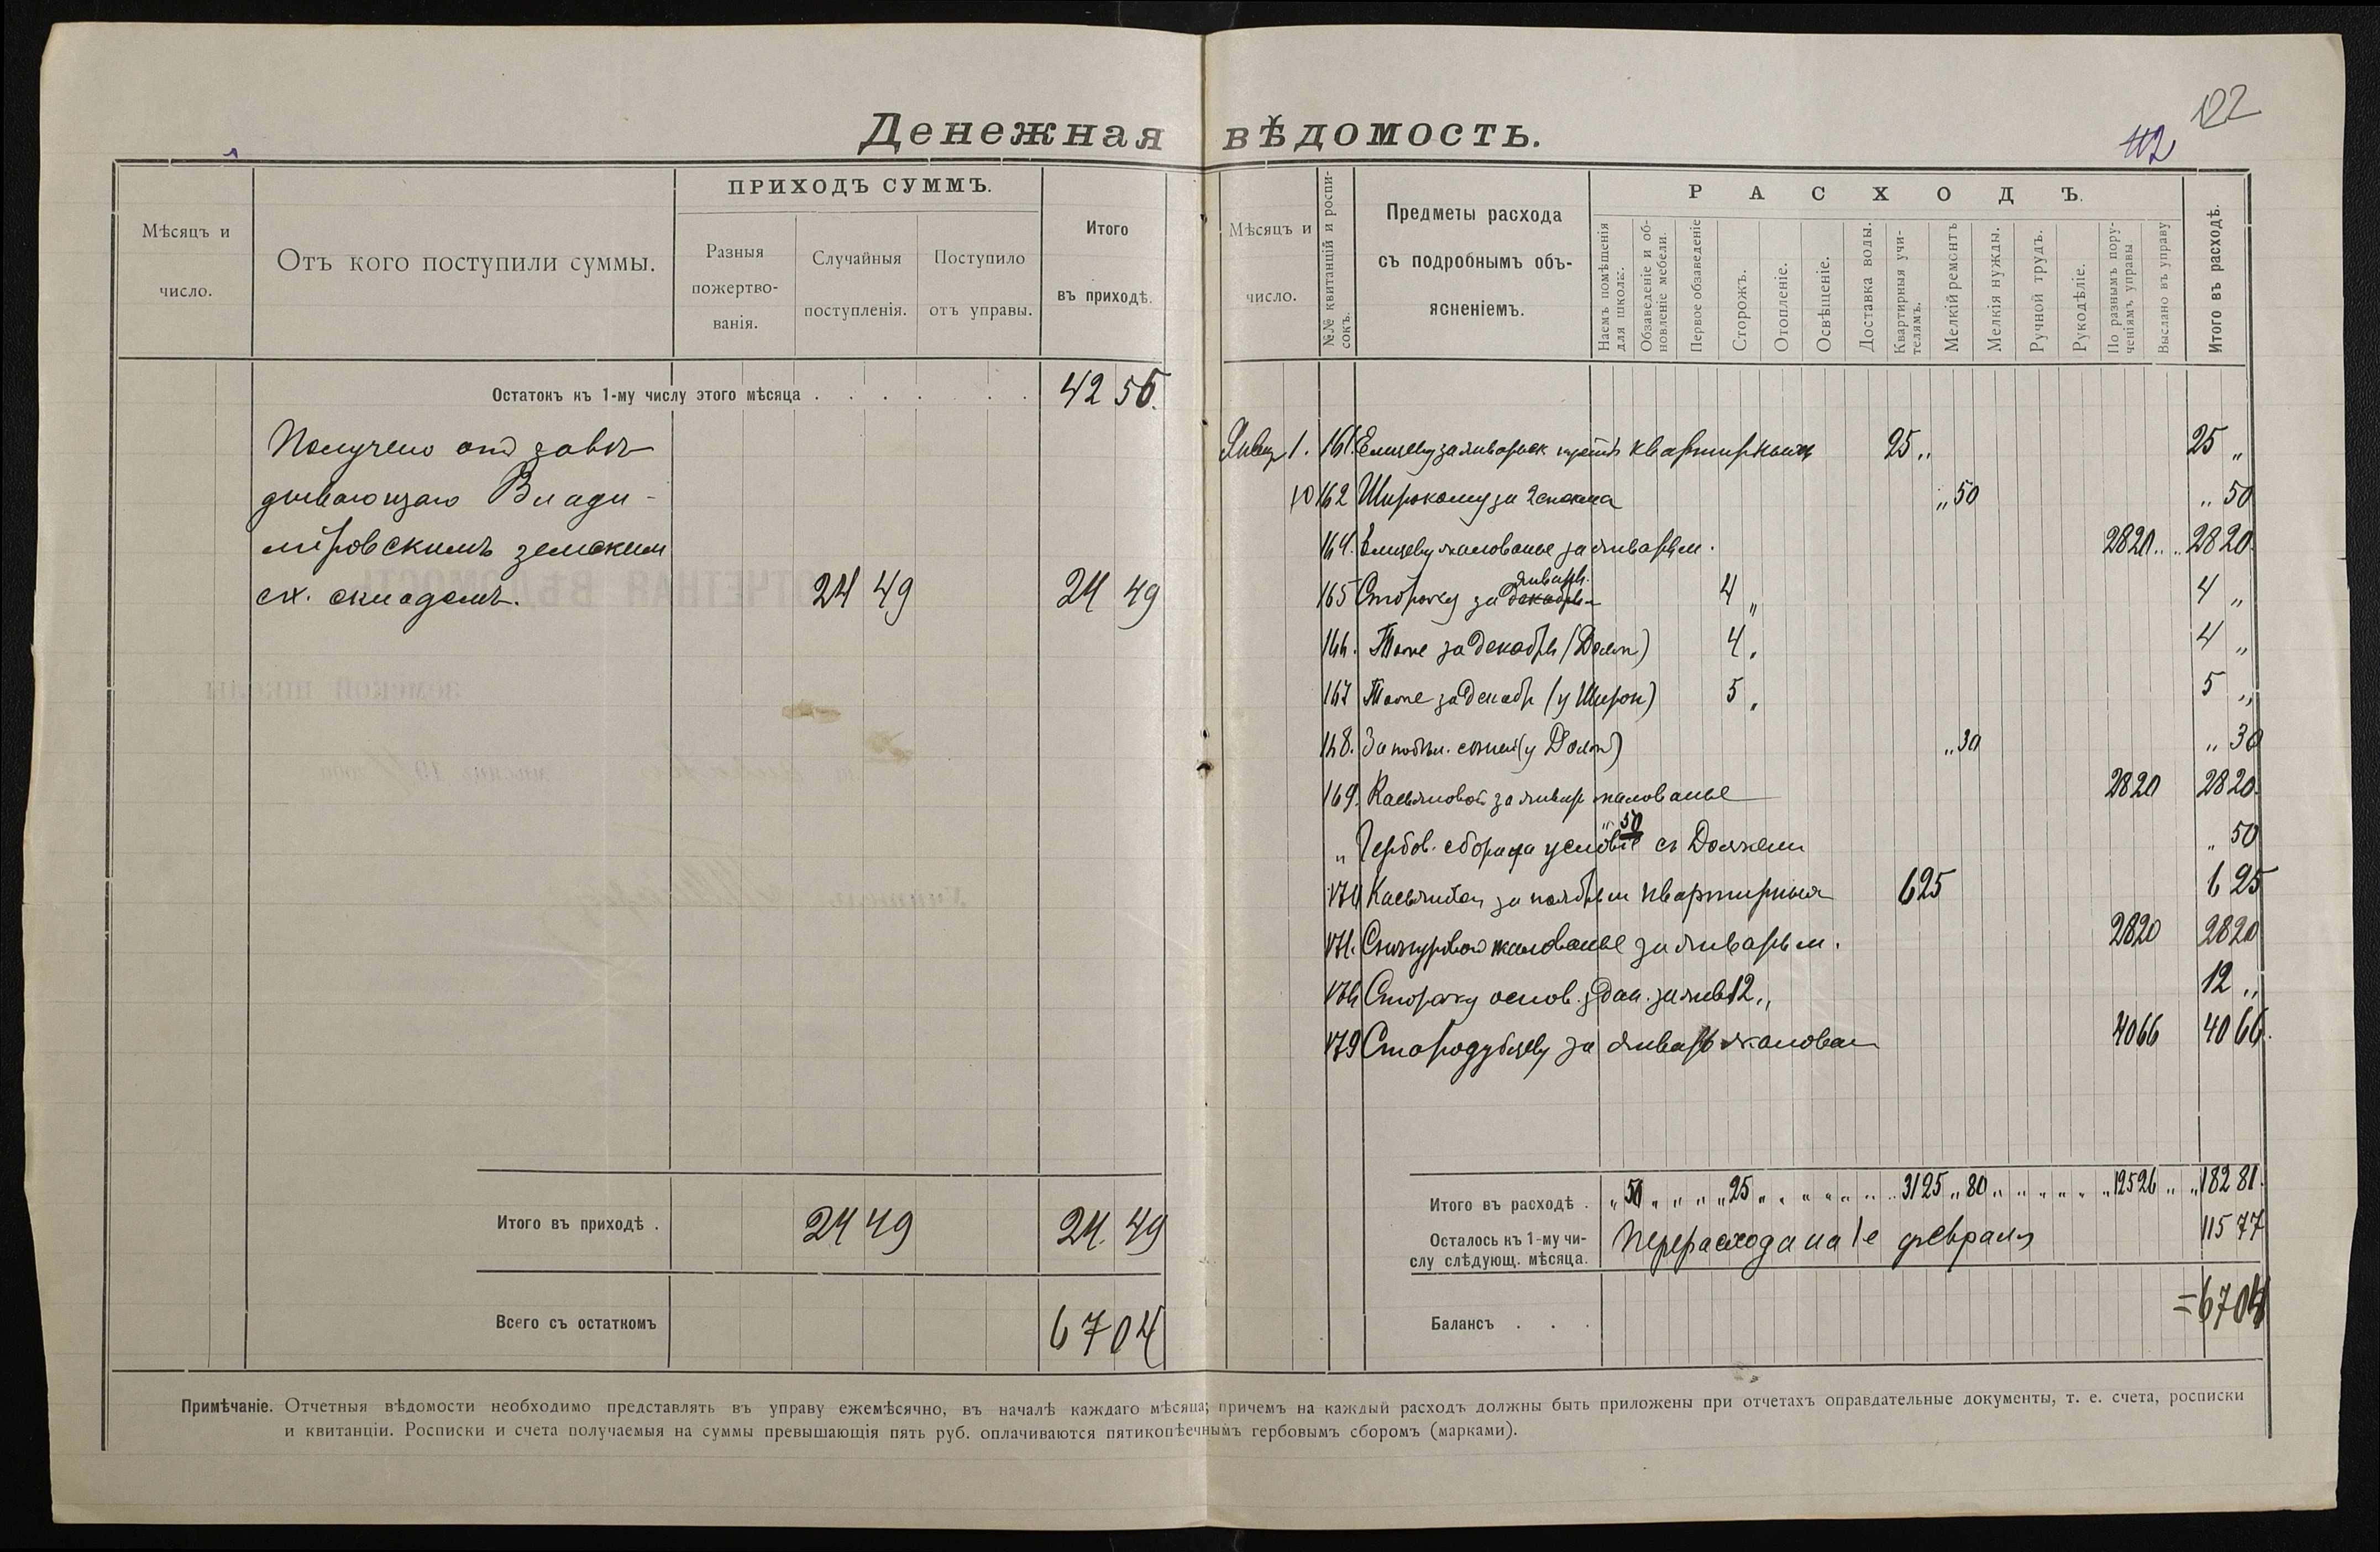 122
42
Денежная вѣдомость.
Мѣсяцъ и число.
Отъ кого поступили суммы.
ПРИХОДЪ СУММЪ.
Разныя пожертво-
ванія.
Случайныя поступленія.
Поступило отъ управы.
Итого въ приходѣ.
Остатокъ къ 1-му числу этого мѣсяца . . . . . . . 42 55.
Получено отъ завѣ-
дывающаго Влади-
міровскимъ земским
с.х. складомъ. 24 49 24 49
Итого въ приходѣ . 24 49 24. 49
Всего съ остаткомъ 67 04
Мѣсяцъ и число.
№№ квитанцій и роспи-
сокъ.
Предметы расхода
съ подробнымъ объ-
ясненіемъ.
РАСХОДЪ.
Наемъ помѣщенія
для школы.
Обзаведеніе и об-
новленіе мебели.
Первое обзаведеніе
Сторожъ.
Отопленіе.
Освѣщеніе.
Доставка воды.
Квартирныя учи-
телямъ.
Мелкій ремонтъ
Мелкія нужды.
Ручной трудъ.
Рукодѣліе.
По разнымъ пору-
ченіямъ управы
Выслано въ управу
Итого въ расходѣ.
1. 161. Елисееву за январьск квартирныхъ 25 „ 25 „
10 162 Широкому за 2 стекла „ 50 „ 50
164. Елисееву жалованье за январь м. 2820 „ 2820
январь.
165 Сторожу за декабрь 4 „ 4 „
166. Тоже за декабрь (Долж) 4 „ 4 „
167 Тоже за декабр (у Широк) 5 „ 5 „
168. За побѣл. стѣны (у Долж) „ 30 „ 30
169. Касьяновой за январ жалованье 2820 2820
„ 50
„ Гербов. сбора на условіе съ Должкем „ 50
170 Касьяновой за ноябрь м квартирныя 625 6 25
171. жалованье за январь м. 2820 2820
Сторожу основ. здан. за янв 12 „ 12 „
179 Стародубцеву за январь жалован 4066 4066.
Итого въ расходѣ . „ 50 „ „ „ „ 25 „ „ „ „ „ „ 3125 „ 80 „ „ „ „ „ 12526 „ „ 182 81.
Осталось къ 1-му чи-
слу слѣдующ. мѣсяца. Перерасхода на 1е февраля 115 77
Балансъ . . . =6704
Примѣчаніе. Отчетныя вѣдомости необходимо представлять въ управу ежемѣсячно, въ началѣ каждаго мѣсяца; причемъ на каждый расходъ должны быть приложены при отчетахъ оправдательные документы, т. е. счета, росписки
и квитанціи. Росписки и счета получаемыя на суммы превышающія пять руб. оплачиваются пятикопѣечнымъ гербовымъ сборомъ (марками).